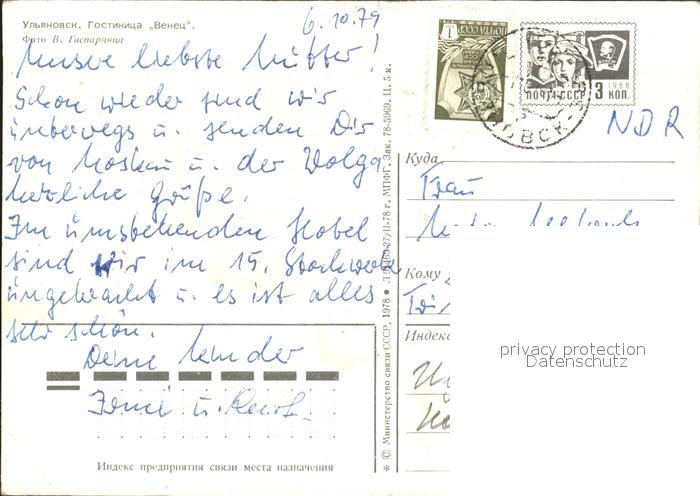 Ульяновск. Гостиница „Венец".
Фото В. Гаспарянца
6.10.79
Unsere liebste Mutter!
Schon wieder sind wir
unterwegs u. senden Dir
von Moskau u. der Wolga
herzliche Grüße.
Im umstehenden Hotel
sind wir im 15. Stockwerk
u. es ist alles
sehr schön.
Deine Kinder
u.
Индекс предприятия связи места назначения
© Министерство связи СССР, 1978
27/II-78 г. МПФГ. Зак. 78-5969. Ц. 5 к.
ПОЧТА СССР
1
ПОЧТА СССР 1966
3 КОП.
NDR
Куда
Frau
Кому
Индекс
privacy protection
Datenschutz